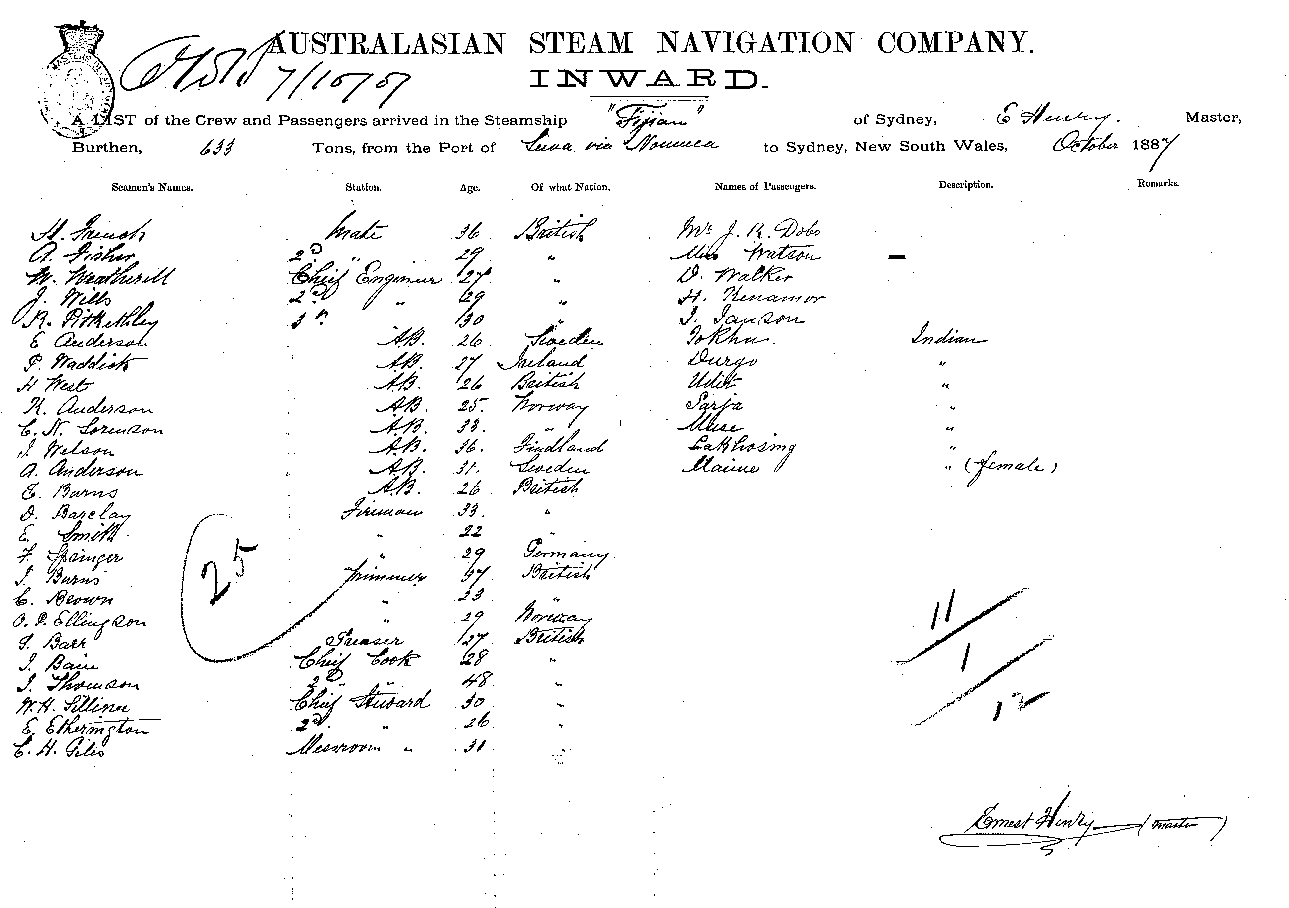 AUSTRALASIAN STEAM NAVIGATION COMPANY.
7/10/87
INWARD.
A LIST of the Crew and Passengers arrived in the Steamship "Fijian" of Sydney, E Henry. Master,
Burthen, 633 Tons, from the Port of Suva via Noumea to Sydney, New South Wales, October 1887
Seamen's Names. Station. Age. Of what Nation. Names of Passengers. Description. Remarks.
H. French Mate 36 British Mr J. R. Dobs
A. Fisher 2d " 29 " Miss Watson –
W. Weatherill Chief Engineer 27 " D. Walker
J. Wills 2nd " 29 " H. Kenamor
R. Pitkethley 3rd 30 J. Janson
E Anderson A.B. 26 Sweden Tokhu. Indian
P. Waddick A.B. 27 Ireland Durgo "
H West A.B. 26 British Udit "
K. Anderson A.B. 25. Norway Parja "
C. N. Sorenson A.B. 33. " Muse "
J. Wilson A.B. 36. Findland Lakhosing "
A. Anderson A.B. 31. Sweden Mainne " (female)
E. Burns A.B. 26 British
D. Barclay Fireman 33. "
E. Smith " 22
F. Springer " 29 Germany
J. Burns Trimmer 37 British
C. Brown " 23 "
O. P. Ellingson " 29 Norway
J. Barr Greaser 27 British
J. Bain Chief Cook 28 "
J. Thomson 2d " 48 "
W. H. Chief Steward 30 "
E. Etherington 2d " 26 "
C. H. Giles Messroom " 31 "
25
11
1
12
Ernest Henry (Master)